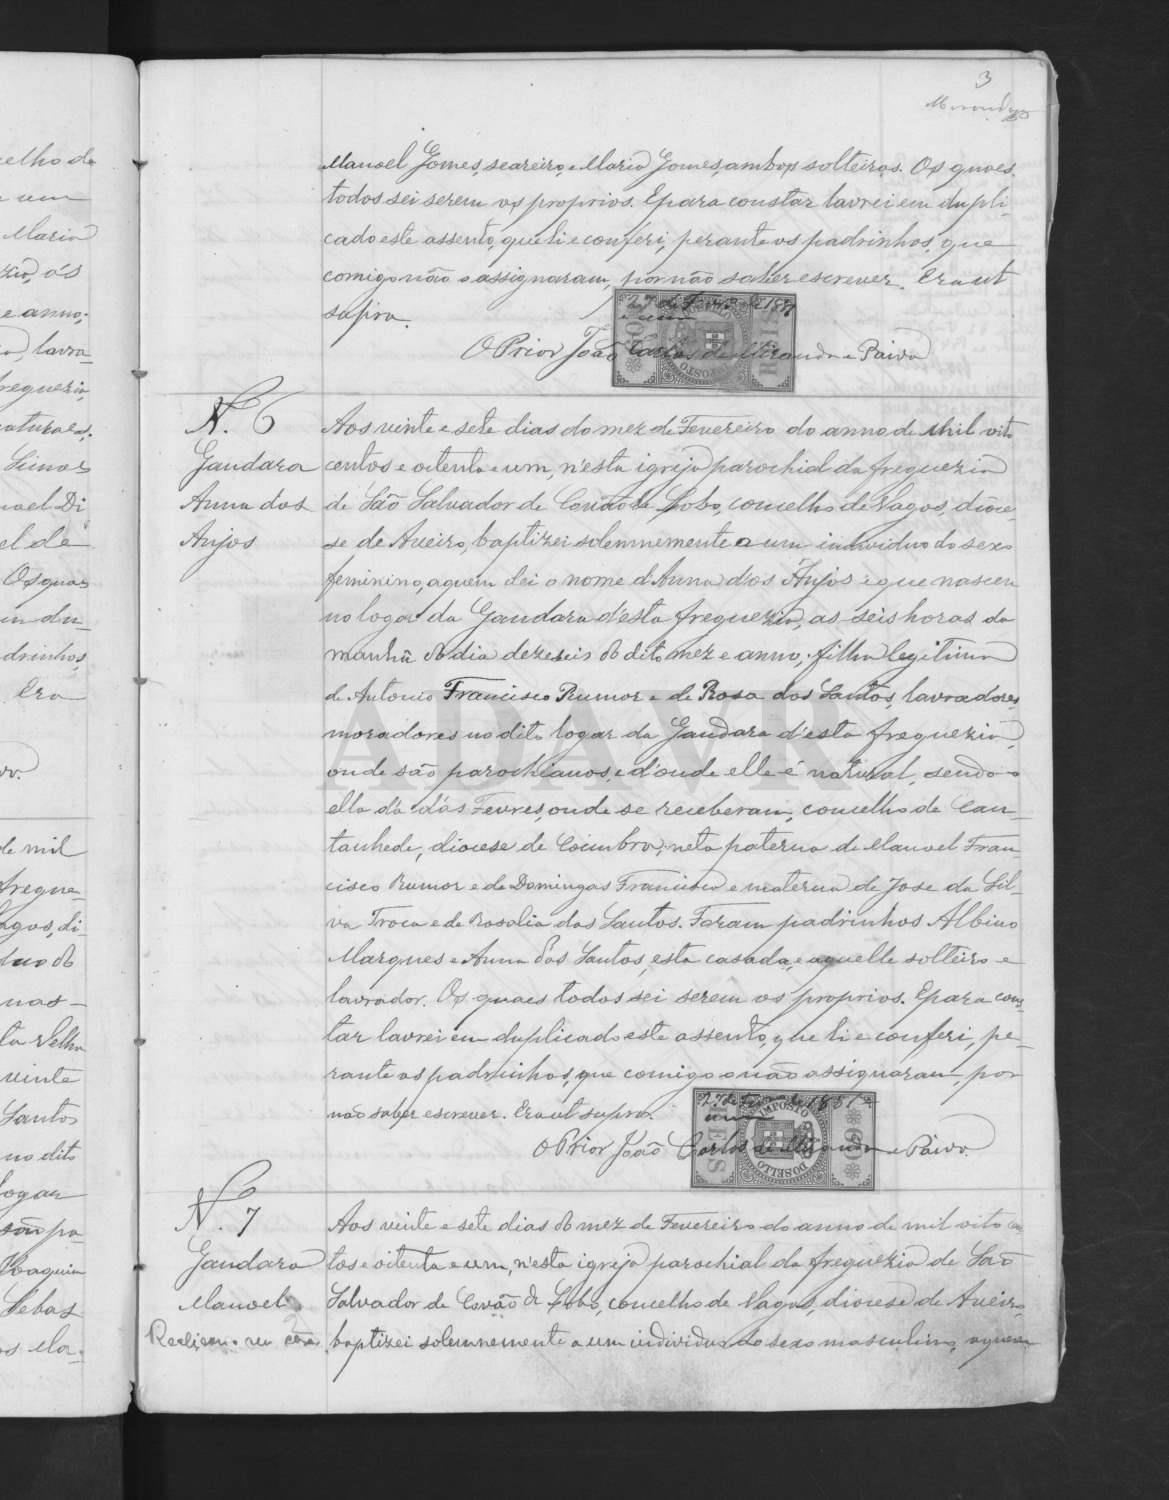 3
Miranda
Manoel Gomes, seareiro, e Maria Gomes, ambos solteiros. Os quaes
todos sei serem os proprios. E para constar lavrei em dupli-
cado este assento, que li e conferi, perante os padrinhos, que
comigo não o assignaram, por não saber escrever. Era ut
supra.
27 de Fevr.º de 1881
e um
O Prior João Carlos de Miranda e Paiva
N. 6
Gandara
Anna dos
Anjos
Aos vinte e sete dias do mez de Fevereiro do anno de mil oito
centos e oitenta e um, n'esta igreja parochial da freguezia
de São Salvador de Covão de Lobo, concelho de Vagos, dioce-
se de Aveiro, baptizei solemnemente a um individuo do sexo
feminino, a quem dei o nome d'Anna dos Anjos e que nasceu
no logar da Gandara d'esta freguezia, as seis horas da
manhã do dia dezeseis do dito mez e anno, filha legitima
de Antonio Francisco Rumor e de Rosa dos Santos, lavradores,
moradores no dito logar da Gandara d'esta freguezia,
onde são parochianos, e d'onde elle é natural, sendo
ella da das Fevres, onde se receberam, concelho de Can-
tanhede, diocese de Coimbra; neta paterna de Manoel Fran-
cisco Rumor e de Domingas Francisca e materna de Jose da Sil-
va Troca e de Rosalia dos Santos. Foram padrinhos Albino
Marques e Anna dos Santos, esta casada, e aquelle solteiro e
lavrador. Os quaes todos sei serem os proprios. E para cons-
tar lavrei em duplicado este assento, que li e conferi, pe-
rante os padrinhos, que comigo o não assignaram, por
não saber escrever. Era ut supra.
27 de Fevr.º de 1881 e
um
IMPOSTO
DO SELLO
REIS
60
O Prior João Carlos de Miranda e Paiva.
N. 7
Gandara
Manoel
Aos vinte e sete dias do mez de Fevereiro do anno de mil oito cen
tos e oitenta e um, n'esta igreja parochial da freguezia de São
Salvador de Covão de Lobo, concelho de Vagos, diocese de Aveiro,
baptizei solemnemente a um individuo do sexo masculino, a quem
ADAVR